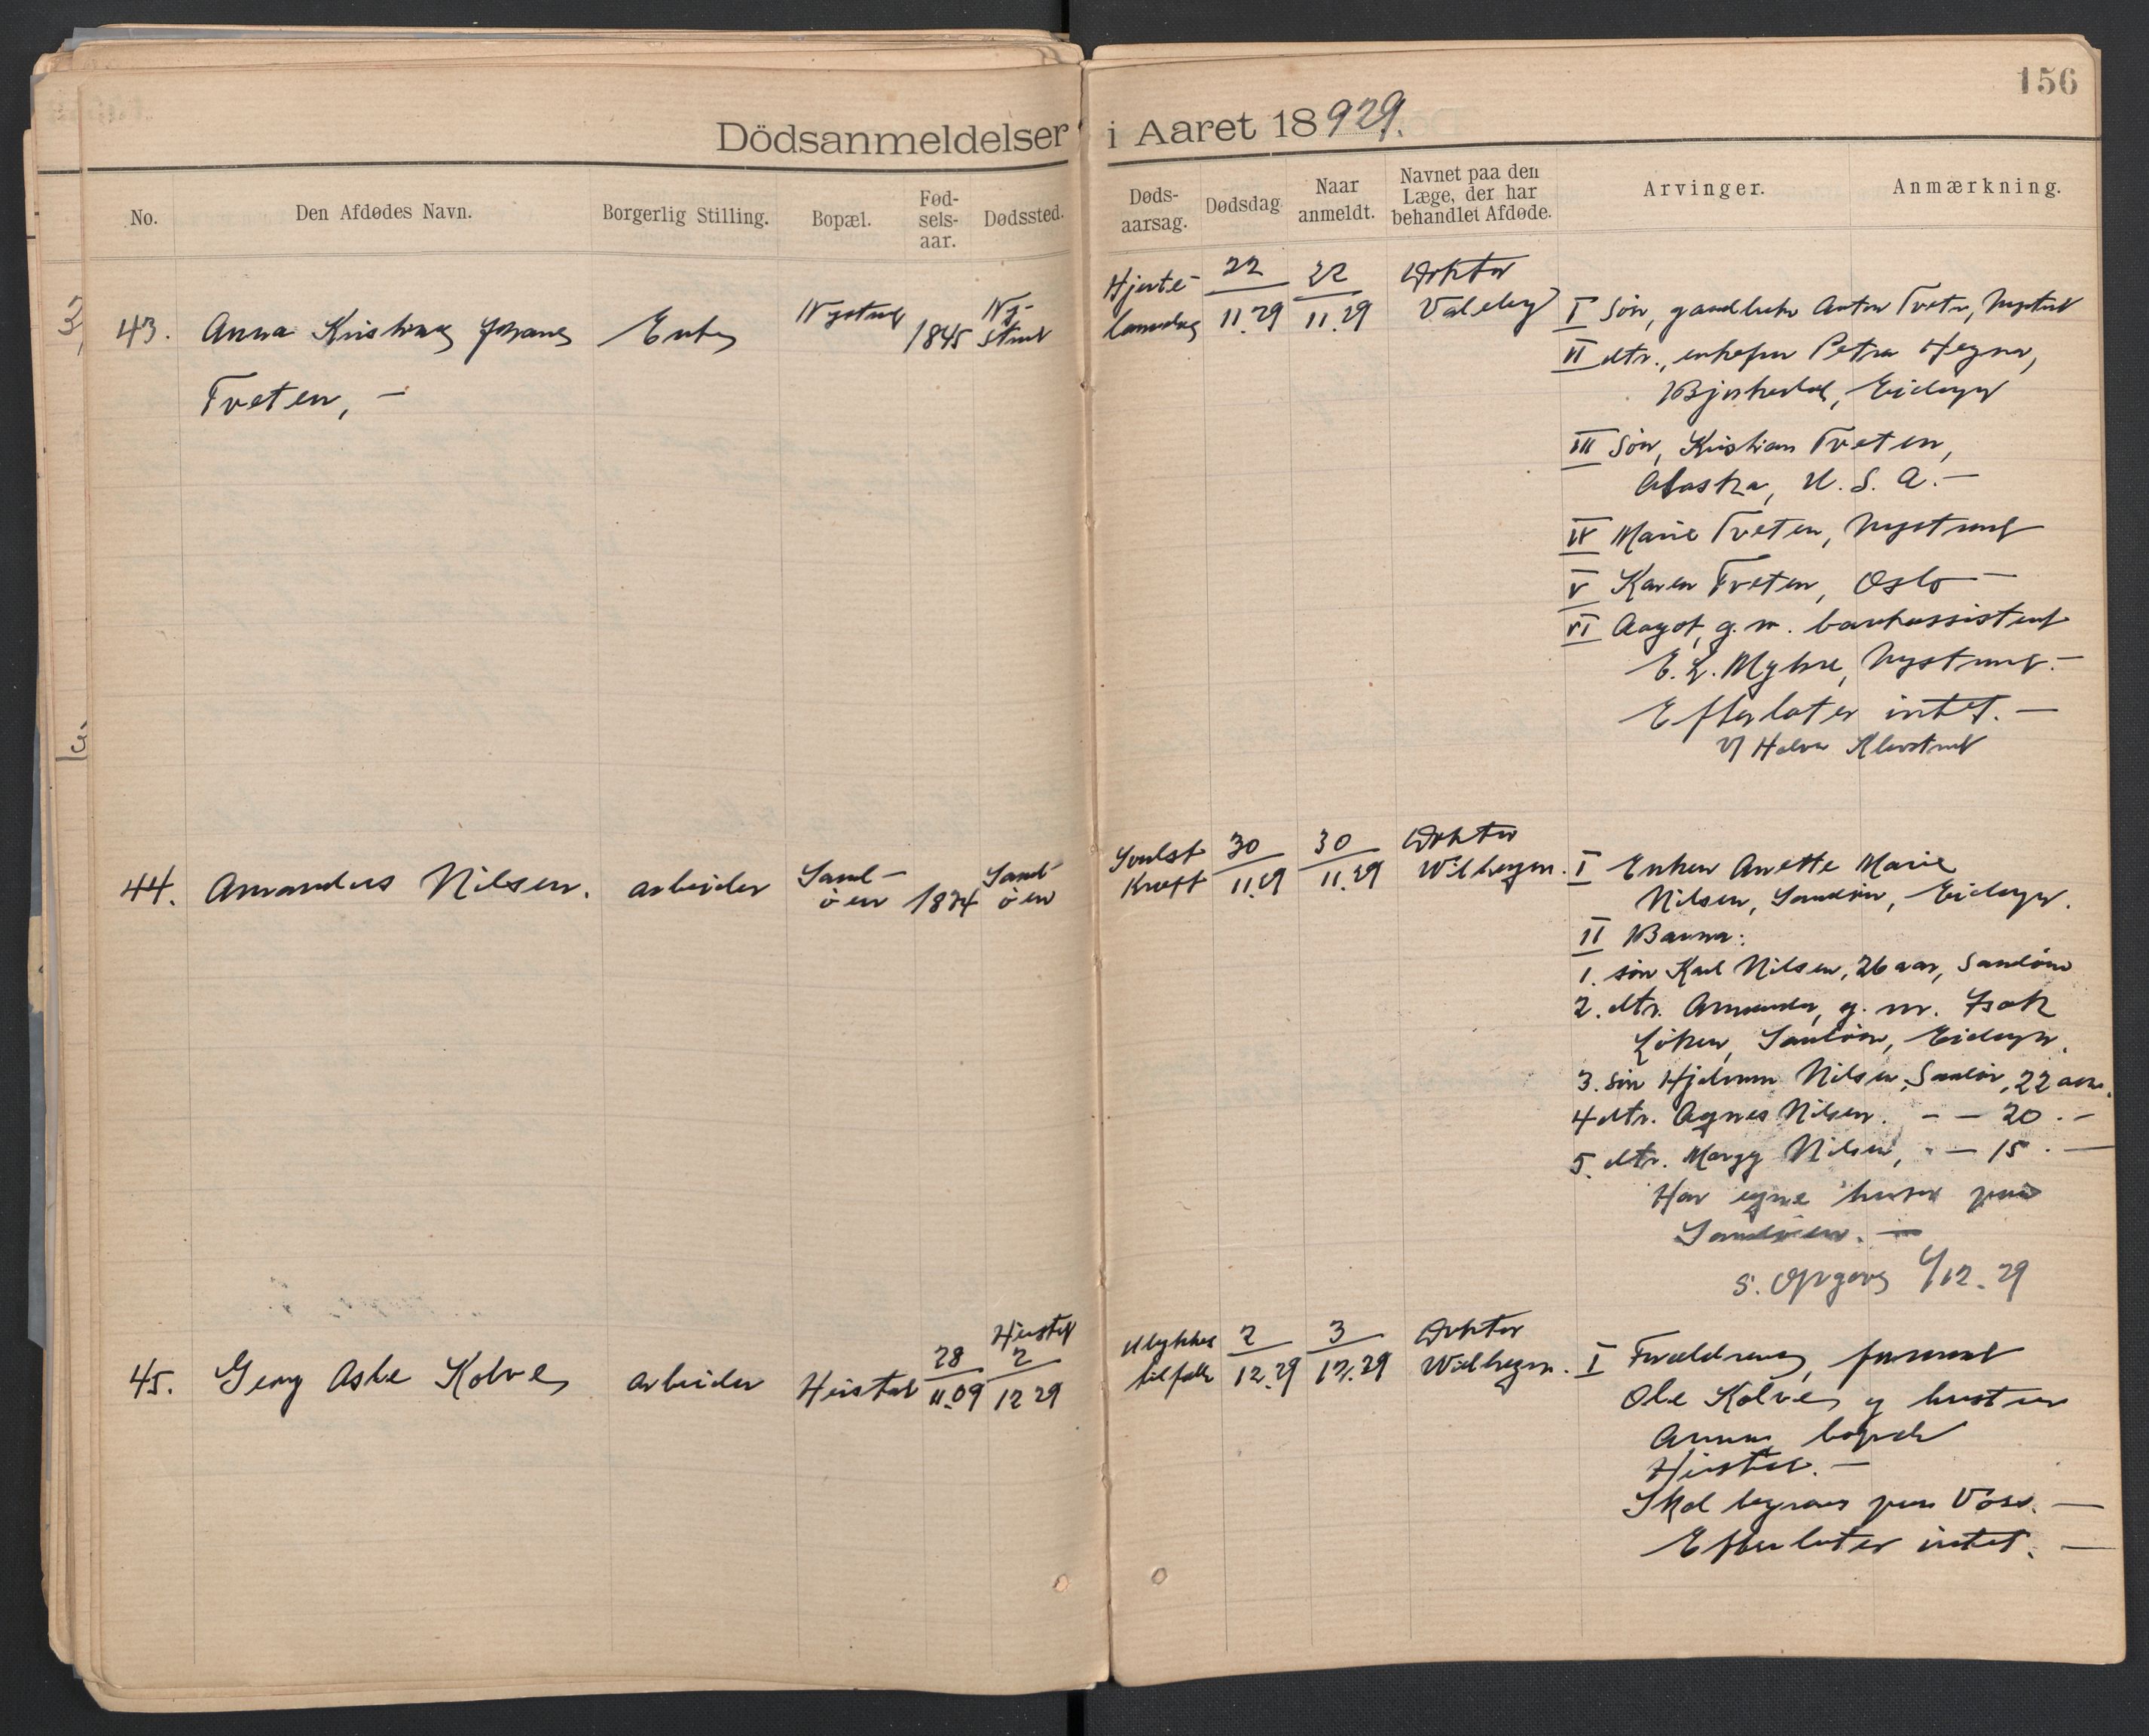 156
Dödsanmeldelser i Aaret 18929.
No.
Den Afdødes Navn.
Borgerlig Stilling.
Bopæl.
Fød-
sels-
aar.
Dødssted.
Døds-
aarsag.
Dødsdag
Naar
anmeldt.
Navnet paa den
Læge, der har
behandlet Afdøde.
Arvinger.
Anmærkning.
43.
Anna Kristine
Tveten, –
Enke
Nystrand
1845
Ny-
strand
Hjerte-
lammelse
22
11.29
22
11.29
Doktor
I Søn, Anton Tveten, Nystrand
II dtr., enkefru Petra
Eidanger
III Søn, Kristian Tveten,
Alaska, U.S.A. –
IV Marie Tveten, Nystrand
V Karen Tveten, Oslo –
VI Aagot, g. m. bankassistent
E. L. Myhre, Nystrand. –
Efterlater intet. –
v/ Halvor
44.
Amandus Nilsen.
arbeider
Sand-
öen
1874
Sand-
öen
Svulst
Kræft
30
11.29
30
11.29
Doktor
I Enken Anette Marie
Nilsen, Sandöen, Eidanger.
II Barna:
1. søn Karl Nilsen, 26 aar, Sandöen
2. dtr. Amanda, g. m. Isak
Löken, Sandöen, Eidanger.
3. søn Hjalmar Nilsen, Sandöen, 22 aar.
4 dtr. Agnes Nilsen. – – 20 . –
5. dtr. Margy Nilsen, – – 15 . –
Har egne huser paa
Sandöen. –
s. Opgave /12. 29
45.
Georg Asle Kolve
arbeider
Heistad
28
11.09
Heistad
2
12 29
Ulykkes
tilfælle
2
12.29
3
12.29
Doktor
I Forældrene, formand
Ole Kolve og hustru
Anna, bopæl
Heistad. –
Skal begraves paa Voss. –
Efterlater intet. –